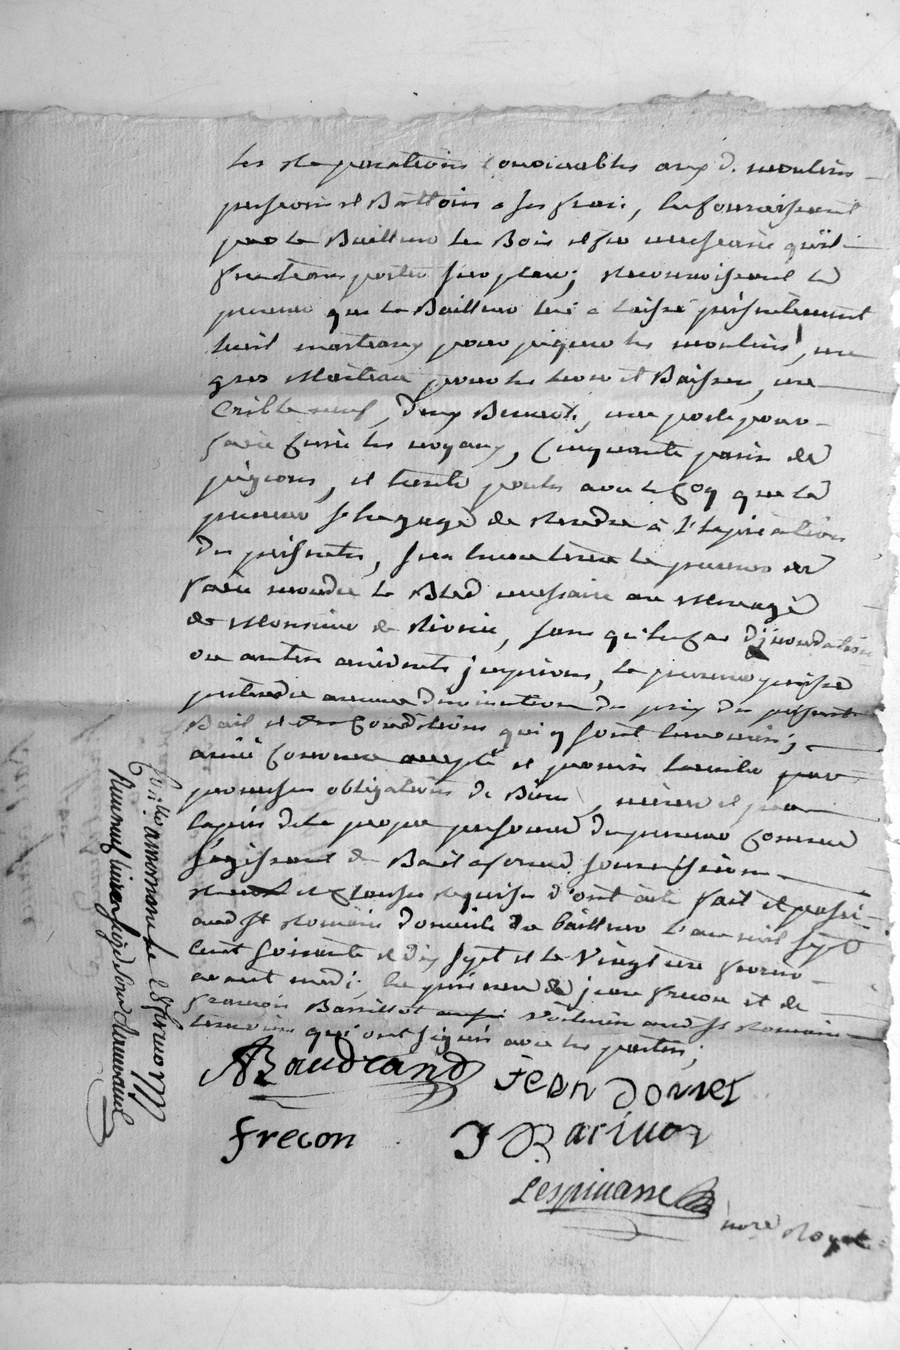 les reparations convenables aux d. moulins
pressoirs et Battoirs a ses frais, luy fournissant
par le Bailleur les Bois et fer necessaire qu'il
fera transporter sur place; reconnoissant led
preneur que le Bailleur lui a laissé presentement
huit marteaux pour piquer les moulins, un
gros Marteau pour les lever et Baisser, une
Crible neuf, deux Bennots, une poele pour
faire cuire les noyaux, Cinquante paires de
pigeons, et trente poules avec le Coq que led
preneur s'est engagé de Rendre à l'expiration
des presentes, sera encore tenu le preneur de
faire moudre le Bled necessaire au Menage
de Monsieur de Rivoire, sans qu'en cas d'jnondation
ou autres accidents jmprevus, le preneur puisse
pretendre aucune diminution du prix du present
Bail et Conditions qui y sont enoncées;
ainsi convenu accepté et promis tenir par
promesses obligations de Biens, même et par
corps de la propre personne du preneur Comme
s'agissant de Bail a ferme, soumissions
et Clauses requises d'ont acte fait et passé
aud St Romain domicile du bailleur l'an mil sept
cent soixante et dix sept et le Vingt un fevrier
avant midi, en presence de jean frecon et de
françois Barillot voiturier aud St Romain
temoins qui ont signés avec les parties;
Baudrand Jean dorret
frecon J Barillot
Lespinasse
nore Royal
Con.lle a mornant le 28 fevrier 1777
Receu neuf livres seize sous